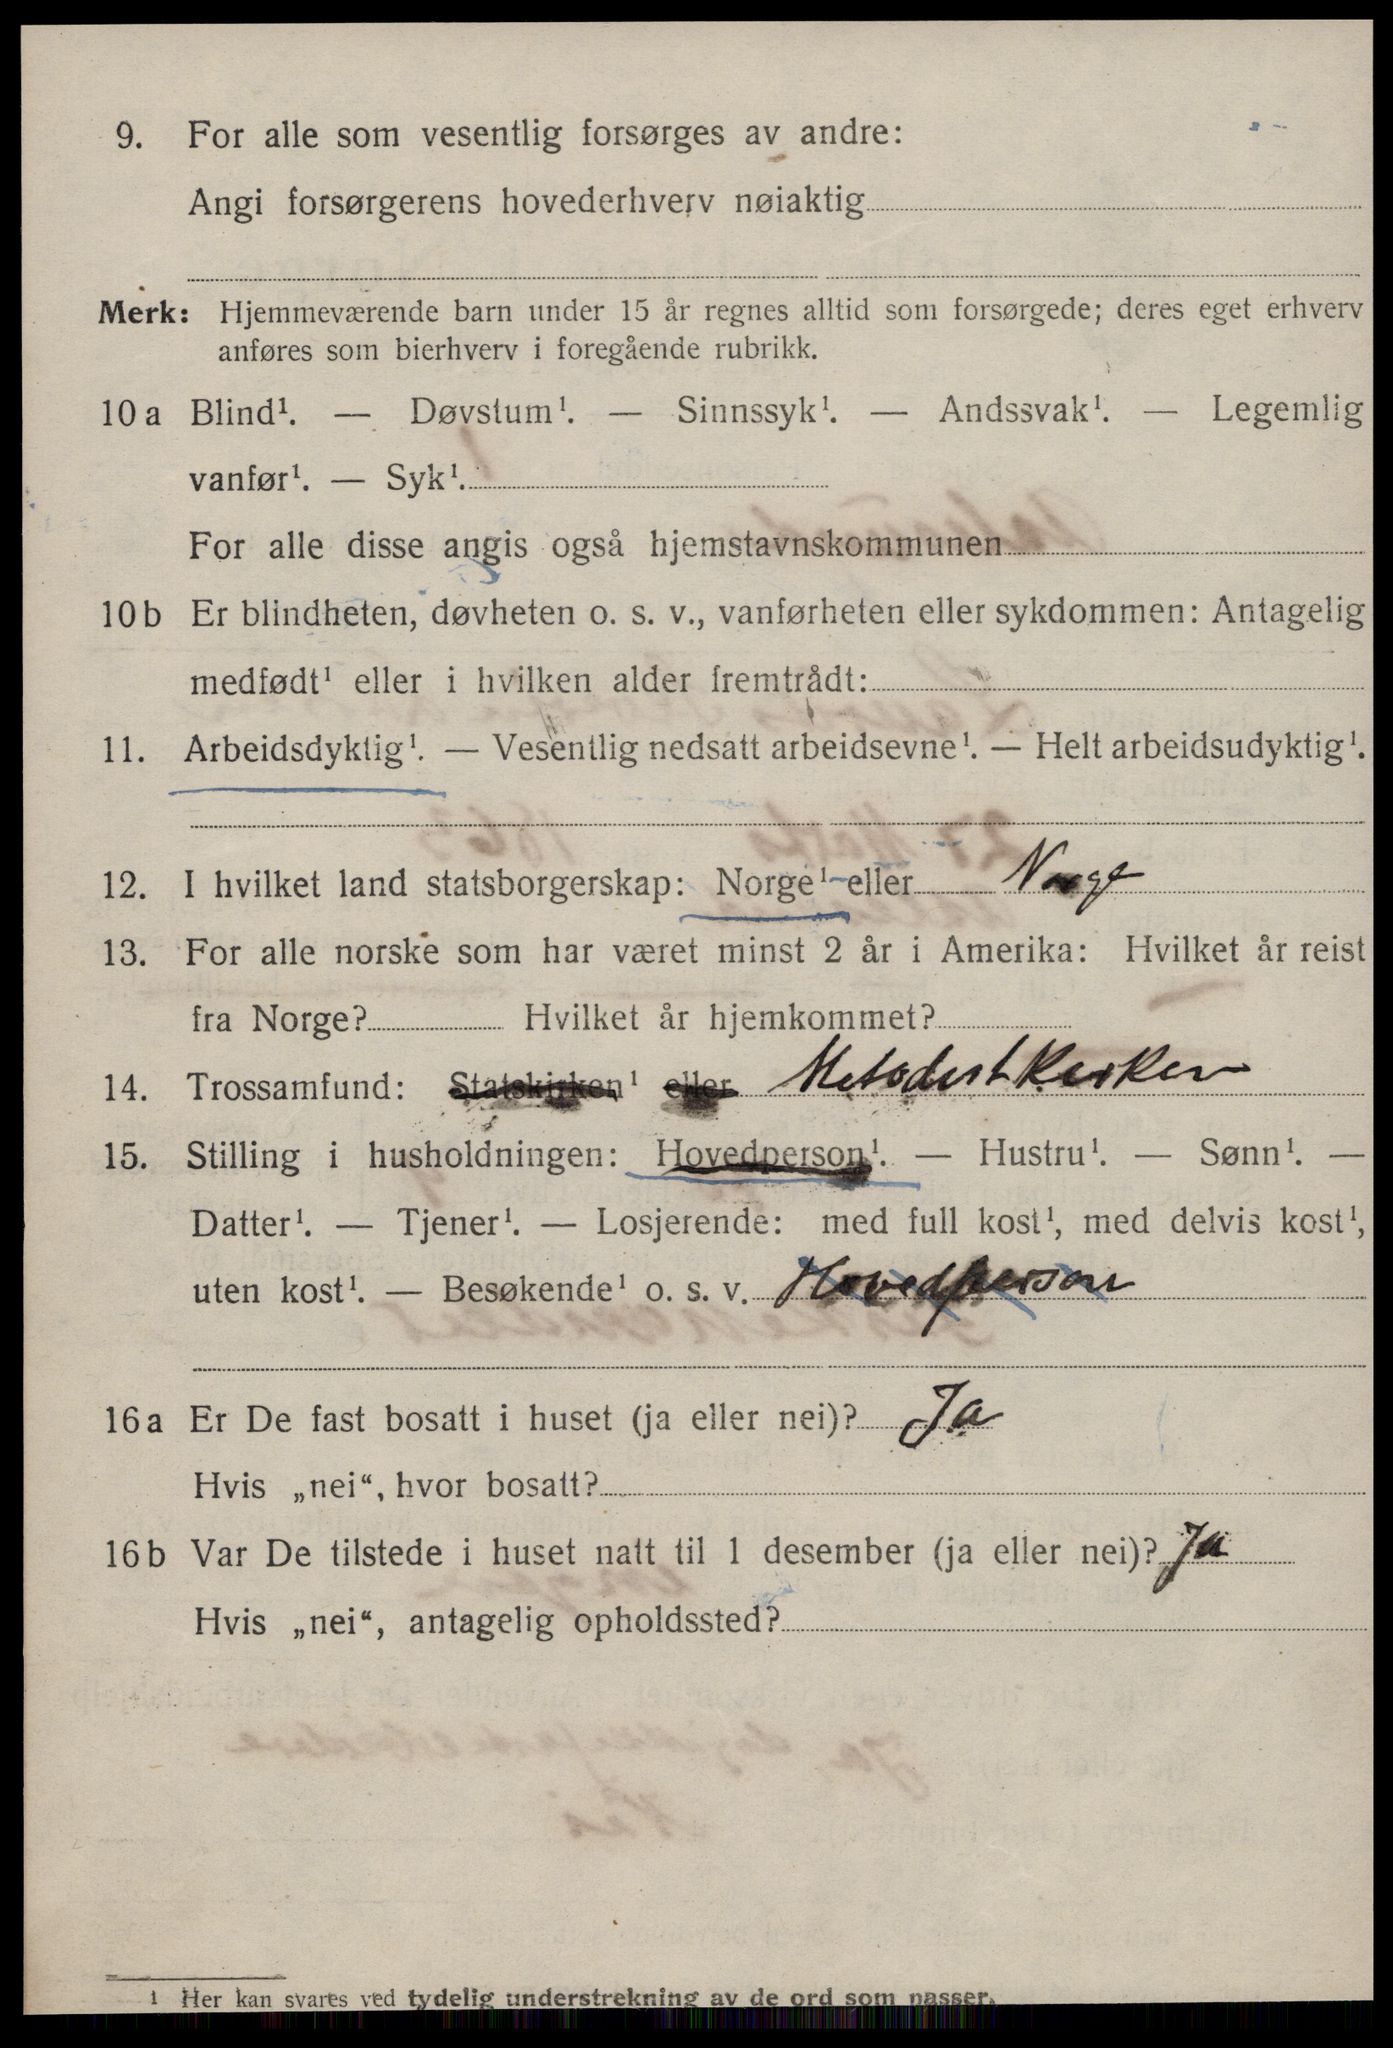 9. For alle som vesentlig forsørges av andre:
Angi forsørgerens hovederhverv nøiaktig
Merk: Hjemmeværende barn under 15 år regnes alltid som forsørgede; deres eget erhverv
anføres som bierhverv i foregående rubrikk.
10 a Blind¹. — Døvstum¹. — Sinnssyk¹. — Andssvak¹. — Legemlig
vanfør¹. — Syk¹.
For alle disse angis også hjemstavnskommunen
10 b Er blindheten, døvheten o. s. v., vanførheten eller sykdommen: Antagelig
medfødt¹ eller i hvilken alder fremtrådt:
11. Arbeidsdyktig¹. — Vesentlig nedsatt arbeidsevne¹. — Helt arbeidsudyktig¹.
12. I hvilket land statsborgerskap: Norge¹ eller Norge
13. For alle norske som har været minst 2 år i Amerika: Hvilket år reist
fra Norge? Hvilket år hjemkommet?
14. Trossamfund: Statskirken¹ eller Metodistkirken
15. Stilling i husholdningen: Hovedperson¹. — Hustru¹. — Sønn¹. —
Datter¹. — Tjener¹. — Losjerende: med full kost¹, med delvis kost¹,
uten kost¹. — Besøkende¹ o. s. v. Hovedperson
16 a Er De fast bosatt i huset (ja eller nei)? Ja
Hvis „nei“, hvor bosatt?
16 b Var De tilstede i huset natt til 1 desember (ja eller nei)? Ja
Hvis „nei“, antagelig opholdssted?
¹ Her kan svares ved tydelig understrekning av de ord som passer.